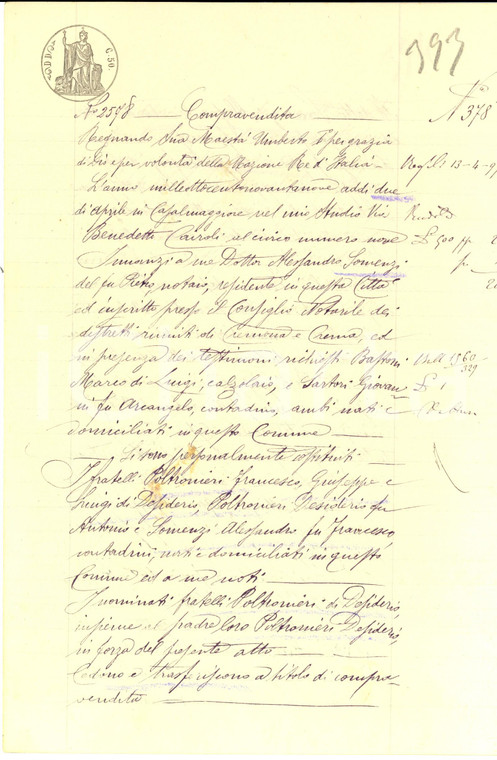 C. 50
393
N° 2578 — Compravendita
N° 378
Regnando Sua Maestà Umberto I° per grazia
di Dio e per volontà della Nazione Re d'Italia
L'anno milleottocentonovantanove addì due
di aprile in Casalmaggiore nel mio Studio Via
Benedetto Cairoli al civico numero nove
Innanzi a me Dottor Alessandro Somenzi
del fu Pietro, notaio, residente in questa Città
ed inscritto presso il Consiglio Notarile dei
distretti riuniti di Cremona e Crema, ed
in presenza dei testimoni richiesti
Marco di Luigi, calzolaio, e Sartori Giovan
ni fu Arcangelo, contadino, ambi nati e
domiciliati in questo Comune
Si sono personalmente costituiti
I fratelli Poltronieri Francesco, Giuseppe e
Luigi di Desiderio, Poltronieri Desiderio fu
Antonio e Somenzi Alessandro fu Francesco
contadini, nati e domiciliati in questo
Comune ed a me noti
I nominati fratelli Poltronieri di Desiderio,
insieme al padre loro Poltronieri Desiderio,
in forza del presente atto
Cedono e trasferiscono a titolo di compra-
vendita
13-4-9
£ 500
1560
329
£ 1